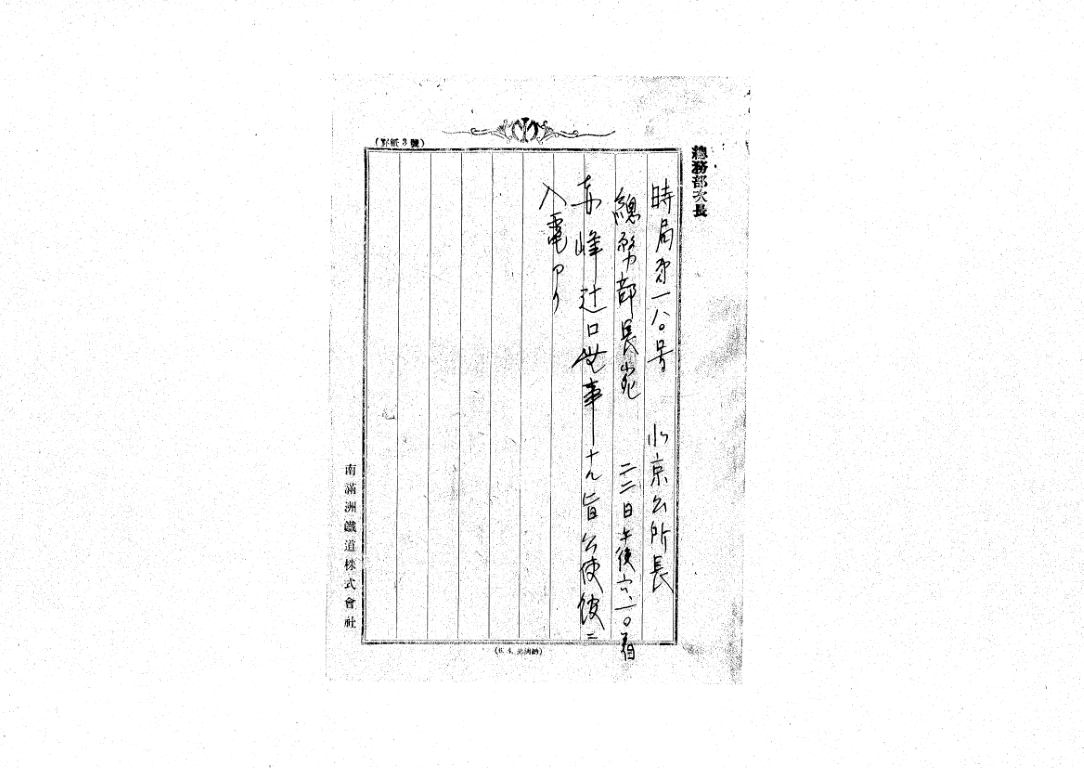 總務部次長
(野紙3號)
時局第一八〇号 北京公所長
總務部長宛 二二日午後六、一〇着
赤峰辻口無事ナル旨公使館ニ
入電アリ
南滿洲鐵道株式會社